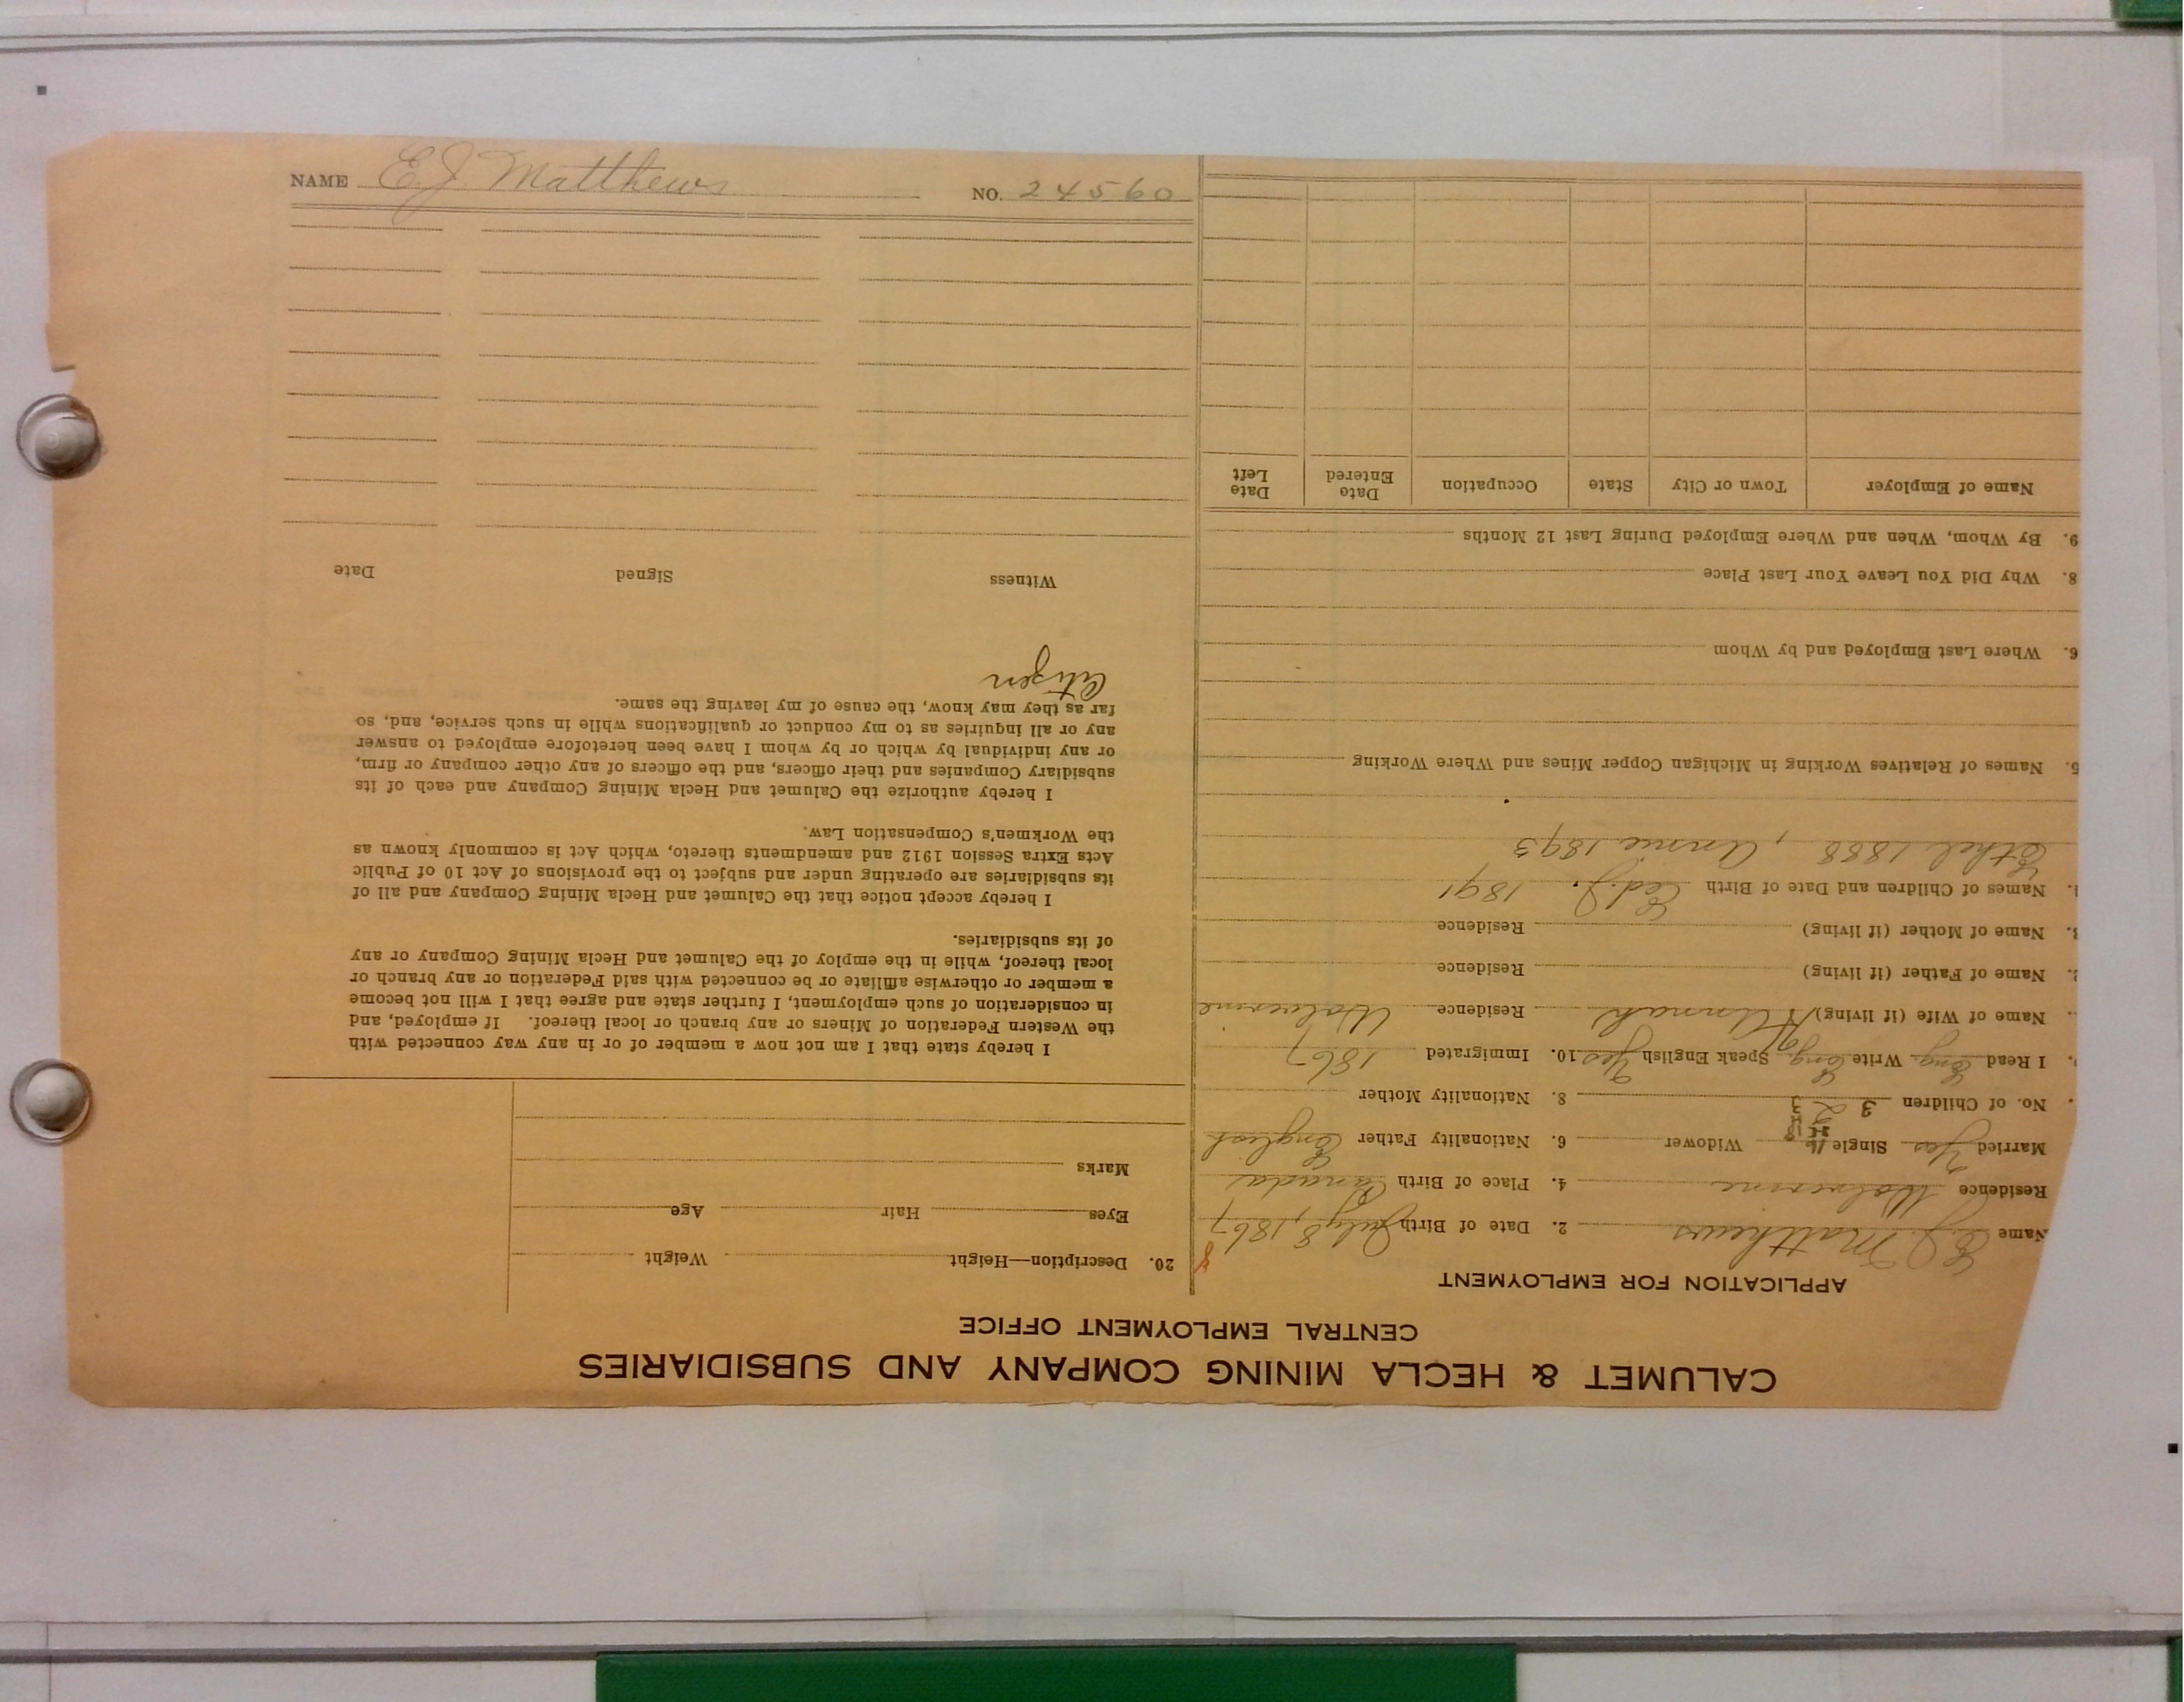 NAME E.J. Matthews NO. 24560
CALUMET & HECLA MINING COMPANY AND SUBSIDIARIES
CENTRAL EMPLOYMENT OFFICE
APPLICATION FOR EMPLOYMENT
Name E.J. Matthews 2. Date of Birth July 8, 1867
Residence Wolverine 4. Place of Birth Canada
Married Yes Single Widower 6. Nationality Father English
No. of Children 3 8. Nationality Mother
I Read Eng. Write Eng. Speak English Yes 10. Immigrated 1867
Name of Wife (if living) Hannah Residence Wolverine
Name of Father (if living) Residence
Name of Mother (if living) Residence
Names of Children and Date of Birth Ed. J. 1891
Ethel 1888, Annie 1893
5. Names of Relatives Working in Michigan Copper Mines and Where Working
6. Where Last Employed and by Whom
8. Why Did You Leave Your Last Place
9. By Whom, When and Where Employed During Last 12 Months
Name of Employer Town or City State Occupation Date Entered Date Left
20. Description—Height Weight
Eyes Hair Age
Marks
I hereby state that I am not now a member of or in any way connected with
the Western Federation of Miners or any branch or local thereof. If employed, and
in consideration of such employment, I further state and agree that I will not become
a member or otherwise affiliate or be connected with said Federation or any branch or
local thereof, while in the employ of the Calumet and Hecla Mining Company or any
of its subsidiaries.
I hereby accept notice that the Calumet and Hecla Mining Company and all of
its subsidiaries are operating under and subject to the provisions of Act 10 of Public
Acts Extra Session 1912 and amendments thereto, which Act is commonly known as
the Workmen's Compensation Law.
I hereby authorize the Calumet and Hecla Mining Company and each of its
subsidiary Companies and their officers, and the officers of any other company or firm,
or any individual by which or by whom I have been heretofore employed to answer
any or all inquiries as to my conduct or qualifications while in such service, and, so
far as they may know, the cause of my leaving the same.
Citizen
Witness Signed Date